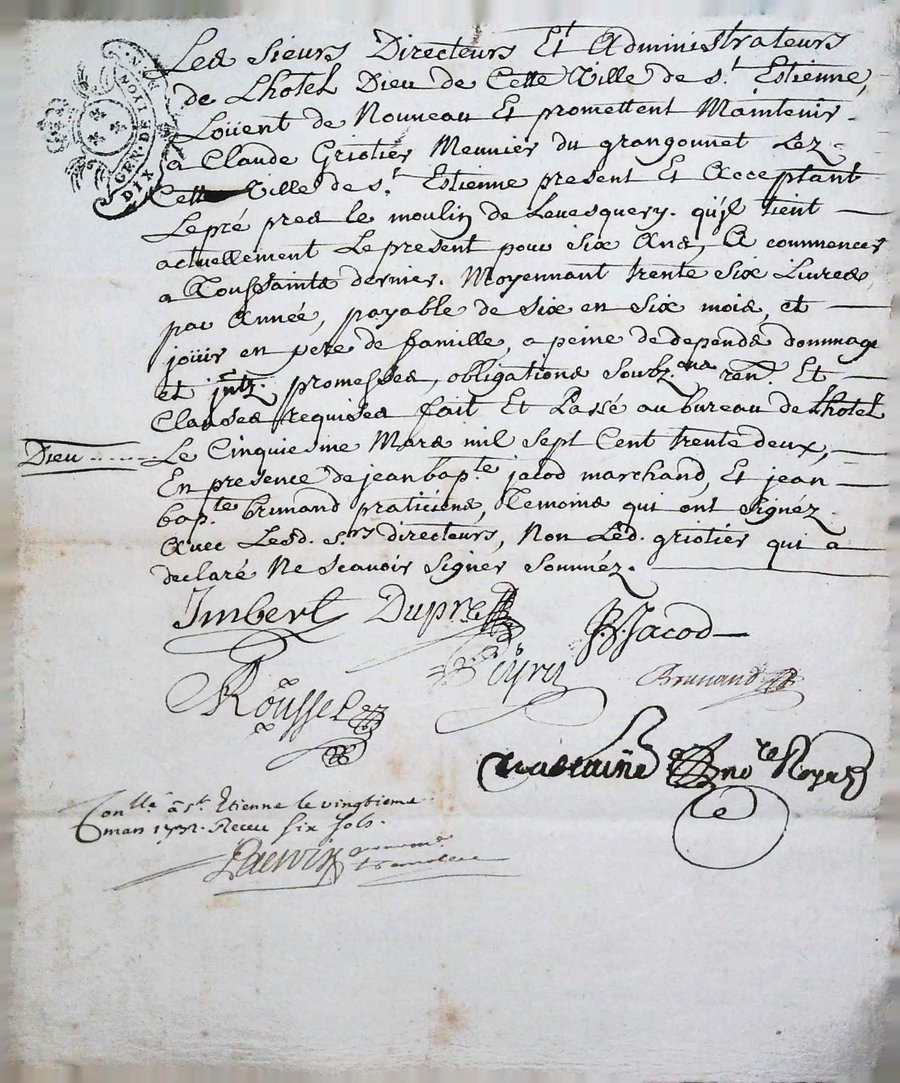 GEN. DE LYON
DIX
Les sieurs Directeurs Et Administrateurs
de Lhotel Dieu de Cette Ville de st. Estienne,
Loüent de Nouveau Et promettent Maintenir
a Claude Griotier Meunier du grangonnet Lez
Cette Ville de st. Estienne present Et Acceptant
Le pré pres le moulin de Levesquery. qu'jl tient
actuellement Le present pour six Ans, A commencer
a Toussaints dernier. Moyennant trente six Livres
par Année, payable de six en six mois, et
joüir en pere de famille, a peine de depends dommage
et jntz. promesses, obligations soubz.ons ren.on Et
Clauses requises fait Et Passé au bureau de Lhotel
Dieu Le Cinquiesme Mars mil sept Cent trente deux,
En presence de jean bap.te jacod marchand, Et jean
bap.te brunand praticiens, Temoins qui ont signéz
Avec Lesd. s.rs directeurs, Non Led. griotier qui a
declaré Ne scavoir signer sommez.
Jmbert Dupre
J.B. Jacod
Peyret
Brunand
Rousset
no.re Royal
Con.lle a st. Etienne le vingtieme
mars 1732. Receu six sols.